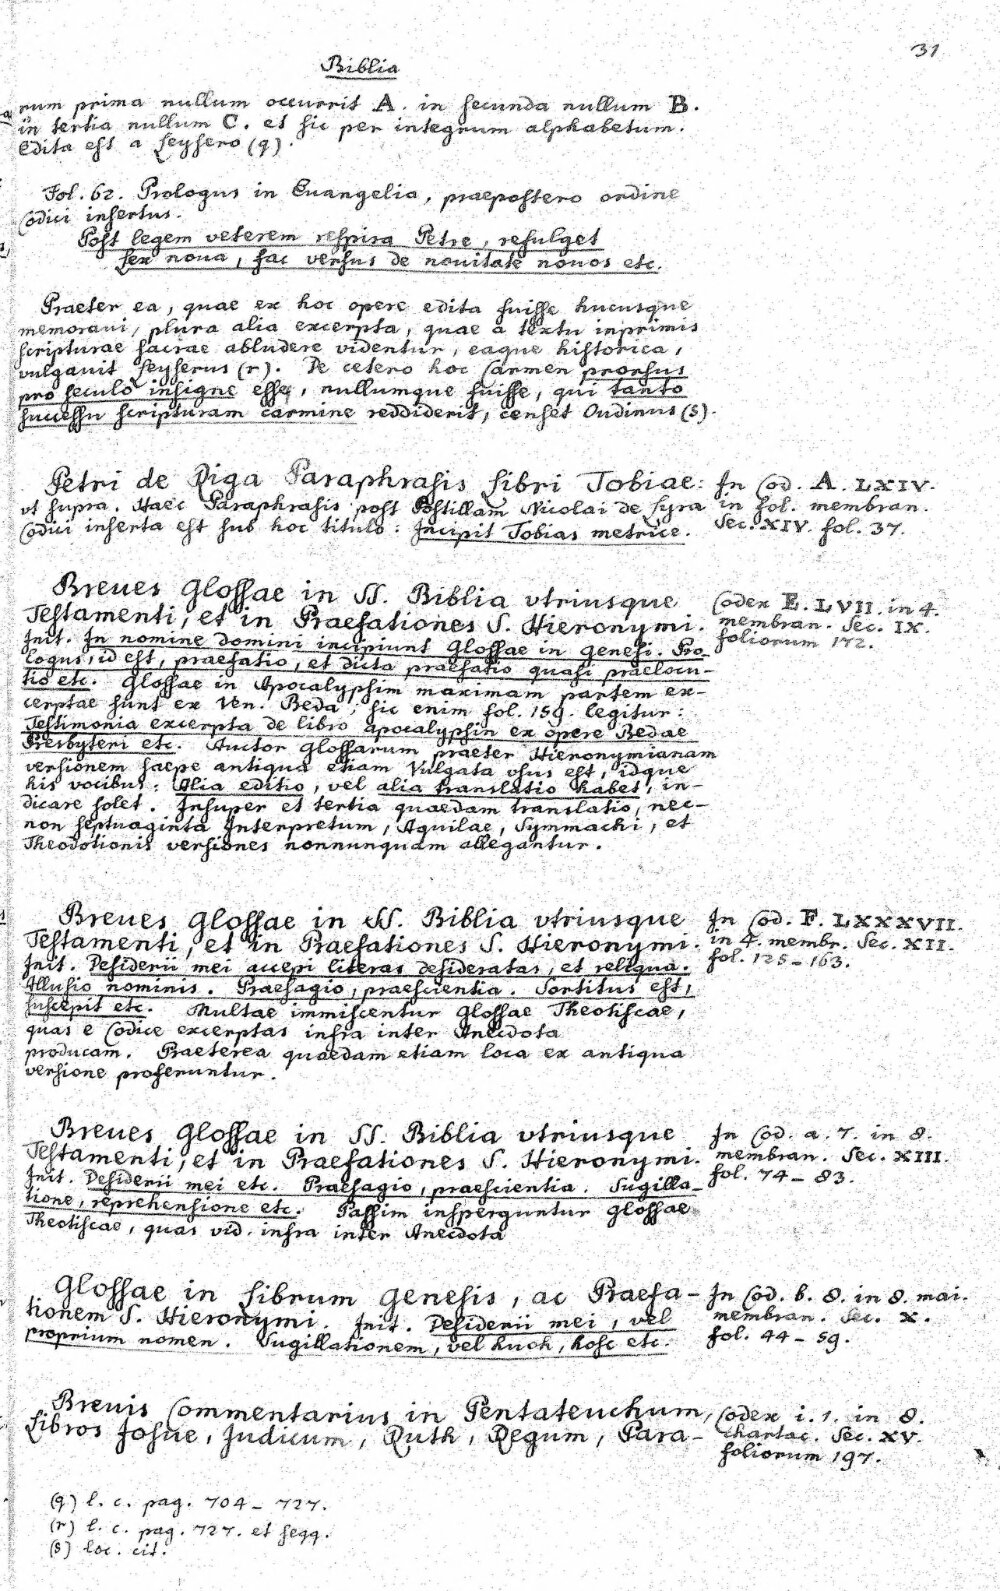 31
Biblia
rum prima nullum occurrit A. in secunda nullum B.
in tertia nullum C. et sic per integrum alphabetum.
Edita est a Leysero (q).
Fol. 62. Prologus in Euangelia, praepostero ordine
Codici insertus.
Post legem veterem respira Petre, refulget
Lex noua, fac versus de nouitate nouos etc.
Praeter ea, quae ex hoc opere edita fuisse hucusque
memoraui, plura alia excerpta, quae a textu inprimis
scripturae sacrae abludere videntur, eaque historica,
vulgauit Leyserus (r). De cetero hoc Carmen prorsus
pro seculo insigne esse, nullumque fuisse, qui tanto
successu scripturam carmine reddiderit, censet Oudinus (s).
Petri de Riga Paraphrasis Libri Tobiae:
vt supra. Haec Paraphrasis post Postillam Nicolai de Lyra
Codici inserta est sub hoc titulo: Incipit Tobias metrice.
In Cod. A. LXIV.
in fol. membran.
Sec. XIV. fol. 37.
Breues Glossae in SS. Biblia vtriusque
Testamenti, et in Praefationes S. Hieronymi.
Init. In nomine domini incipiunt Glossae in genesi. Pro-
logus, id est, praefatio, et dicta praefatio quasi praelocu-
tio etc. Glossae in Apocalypsim maximam partem ex-
cerptae sunt ex Ven. Beda, sic enim fol. 159. legitur:
Testimonia excerpta de libro apocalypsin ex opere Bedae
Presbyteri etc. Auctor glossarum praeter Hieronymianam
versionem saepe antiqua etiam Vulgata vsus est, idque
his vocibus: Alia editio, vel alia translatio habet, in-
dicare solet. Insuper et tertia quaedam translatio, nec-
non septuaginta Interpretum, Aquilae, Symmachi, et
Theodotionis versiones nonnunquam allegantur.
Codex E. LVII. in 4.
membran. Sec. IX.
foliorum 172.
Breues Glossae in SS. Biblia vtriusque
Testamenti, et in Praefationes S. Hieronymi.
Init. Desiderii mei accepi literas desideratas, et reliqua.
Allusio nominis. Praesagio, praescientia. Sortitus est,
suscepit etc. Multae immiscentur glossae Theotiscae,
quas e Codice excerptas infra inter Anecdota
producam. Praeterea quaedam etiam loca ex antiqua
versione proferuntur.
In Cod. F. LXXXVII.
in 4. membr. Sec. XII.
fol. 125-163.
Breues Glossae in SS. Biblia vtriusque
Testamenti, et in Praefationes S. Hieronymi.
Init. Desiderii mei etc. Praesagio, praescientia. Sugilla-
tione, reprehensione etc. Passim insperguntur glossae
Theotiscae, quas vid. infra inter Anecdota
In Cod. a. 7. in 8.
membran. Sec. XIII.
fol. 74-83.
Glossae in Librum Genesis, ac Praefa-
tionem S. Hieronymi. Init. Desiderii mei, vel
proprium nomen. Sugillationem, vel huoh, hosc etc.
In Cod. b. 8. in 8. mai.
membran. Sec. X.
fol. 44-59.
Breuis Commentarius in Pentateuchum,
Libros Josue, Judicum, Ruth, Regum, Para-
Codex i. 1. in 8.
chartac. Sec. XV.
foliorum 197.
(q) l. c. pag. 704-727.
(r) l. c. pag. 727. et seqq.
(s) loc. cit.